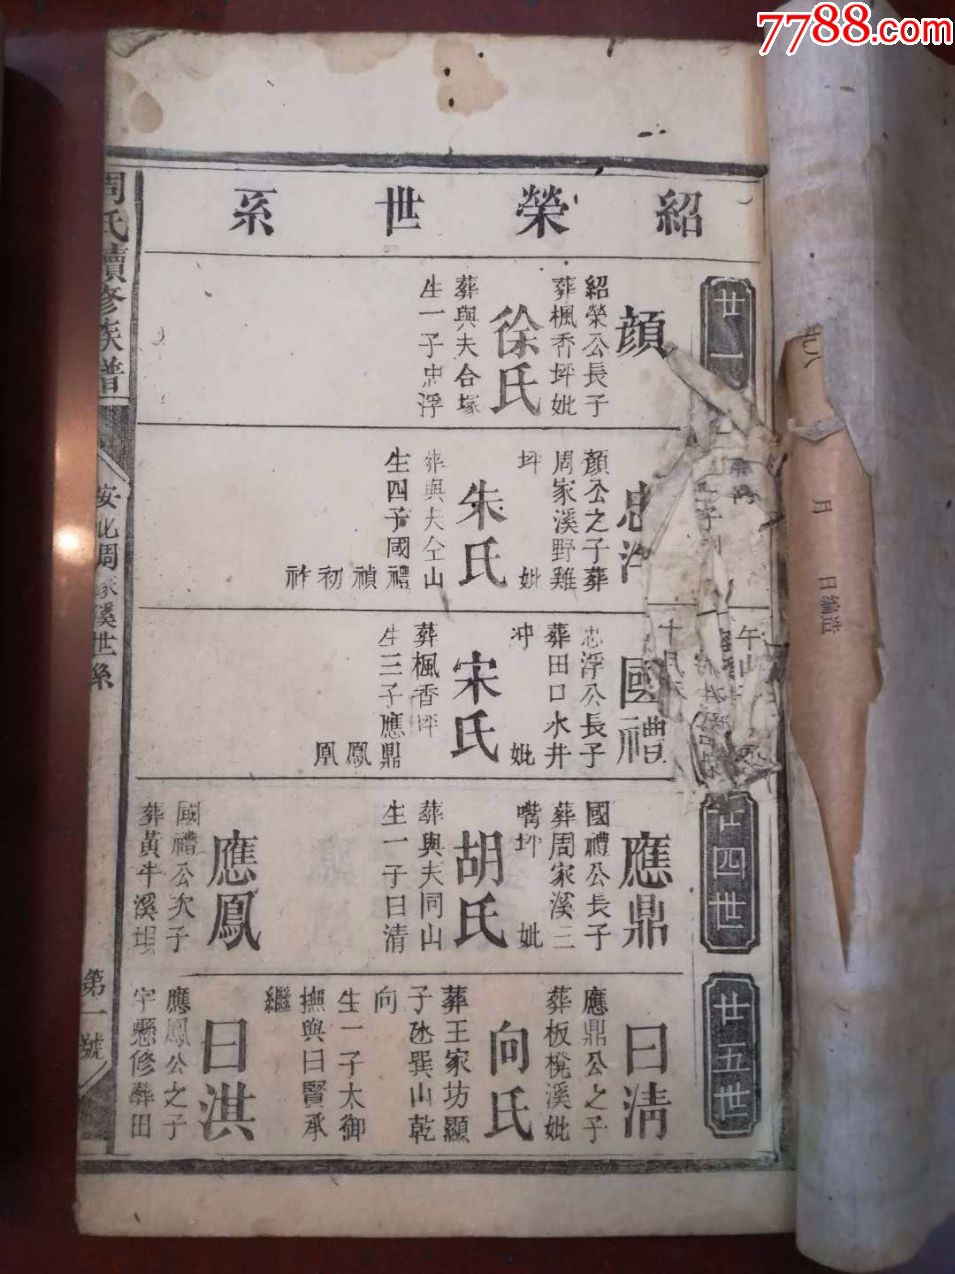 7788.com
紹榮世系
廿一
顏
紹榮公長子
葬楓香坪妣
徐氏
葬與夫合塚
生一子忠浮
忠浮
顏公之子葬
周家溪野雞
坪 妣
朱氏
葬與夫仝山
生四子國禮
禎
初
祚
國禮
忠浮公長子
葬田口水井
冲 妣
宋氏
葬楓香坪
生三子應鼎
鳳
凰
廿四世
應鼎
國禮公長子
葬周家溪三
嘴坪 妣
胡氏
葬與夫同山
生一子日清
應鳳
國禮公次子
葬黃牛溪垻
廿五世
日清
應鼎公之子
葬板櫈溪妣
向氏
葬王家坊顯
子氹巽山乾
向
生一子太御
撫與日賢承
繼
日淇
應鳳公之子
字懸修葬田
周氏續修族譜
安化周家溪世系
第一號
月 日編造
午山子
十